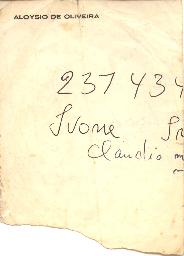 ALOYSIO DE OLIVEIRA
237434
Ivone
Claudio